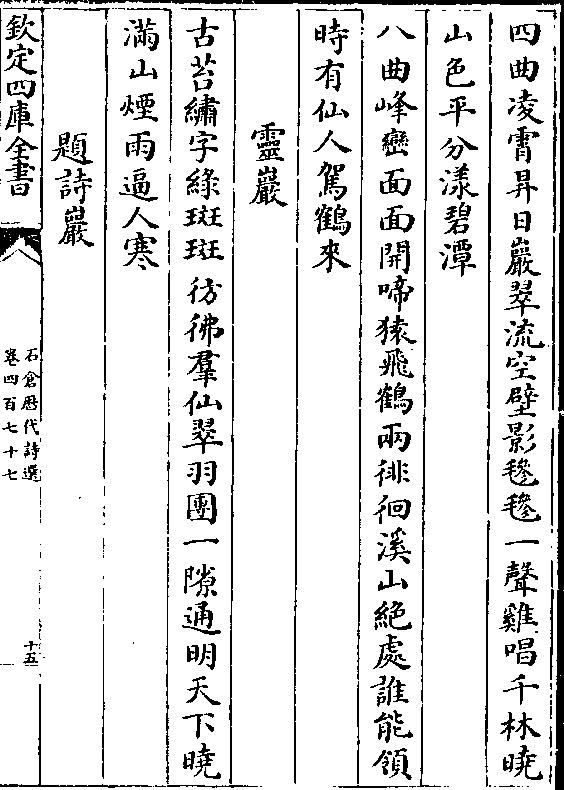 四曲凌霄昇日巖翠流空壁影毿毿一聲雞唱千林曉
山色平分漾碧潭
八曲峰巒面面開啼猿飛鶴兩徘徊溪山絶處誰能領
時有仙人駕鶴來
靈巖
古苔繡字綠斑斑彷彿羣仙翠羽團一隙通明天下曉
滿山煙雨逼人寒
題詩巖
欽定四庫全書
石倉歴代詩選
卷四百七十七
十五